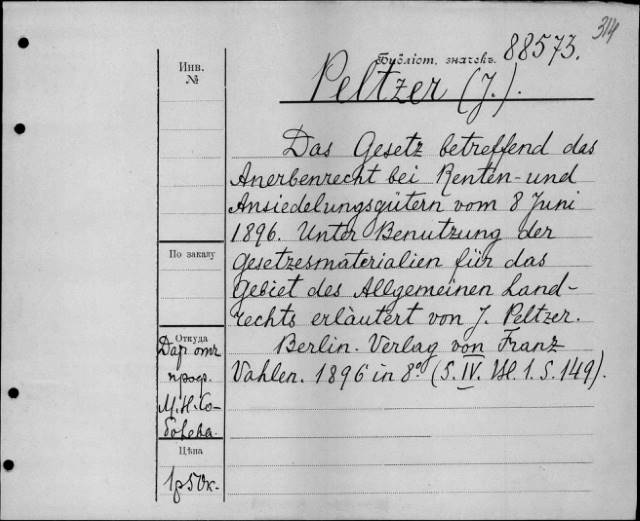 314
Библіот. значекъ. 88573.
Инв.
№
Peltzer (J.).
Das Gesetz betreffend das
Anerbenrecht bei Renten- und
Ansiedelungsgütern vom 8 Juni
1896. Unter Benutzung der
Gesetzesmaterialien für das
Gebiet des Allgemeinen Land-
rechts erläutert von J. Peltzer.
Berlin. Verlag von Franz
Vahlen. 1896 in 8º (S. IV. Bl. 1. S. 149).
По заказу
Откуда
Дар отъ
проф.
М. Н. Со-
болева.
Цѣна
1р50к.